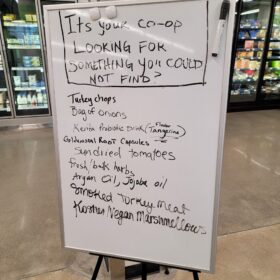 It's your co-op
LOOKING FOR
SOMETHING YOU COULD
NOT FIND?
Turkey chops
Bag of onions
Kevita Probiotic Drink (Tangerine)
Flavor
Goldenseal Root Capsules
Sundried tomatoes
fresh bulk herbs
Argan Oil, Jojoba oil
Smoked Turkey Meat
Kosher Vegan Marshmellows